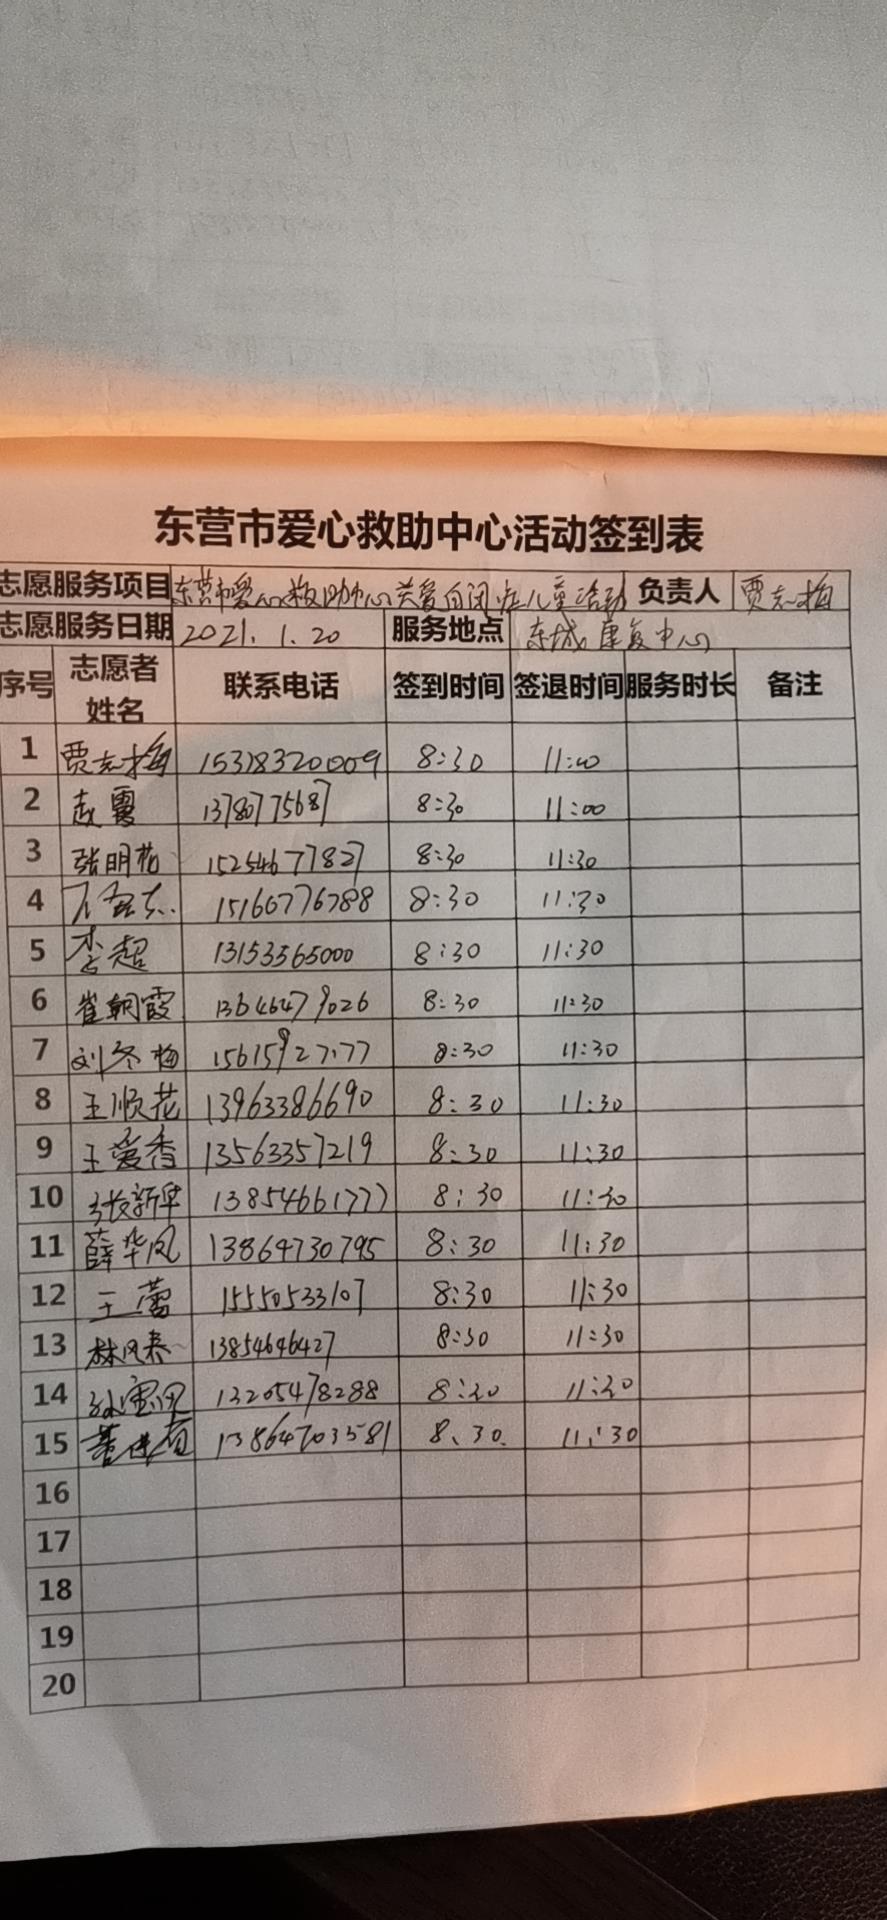 东营市爱心救助中心活动签到表
志愿服务项目 东营市爱心救助中心关爱自闭症儿童活动 负责人 贾志梅
志愿服务日期 2021.1.20 服务地点 东城康复中心
序号 志愿者姓名 联系电话 签到时间 签退时间 服务时长 备注
1 贾志梅 15318320009 8:30 11:00
2 赵霞 13780775687 8:30 11:00
3 张明花 15254677827 8:30 11:30
4 15166776788 8:30 11:30
5 李超 13153565000 8:30 11:30
6 崔朝霞 13646479026 8:30 11:30
7 刘冬梅 15615927177 8:30 11:30
8 王顺花 13963386690 8:30 11:30
9 王爱香 13563357219 8:30 11:30
10 张新华 13854661777 8:30 11:30
11 薛华凤 13864730795 8:30 11:30
12 王蕾 15550533107 8:30 11:30
13 林风春 13854646427 8:30 11:30
14 13205478288 8:30 11:30
15 13864703581 8:30 11:30
16
17
18
19
20